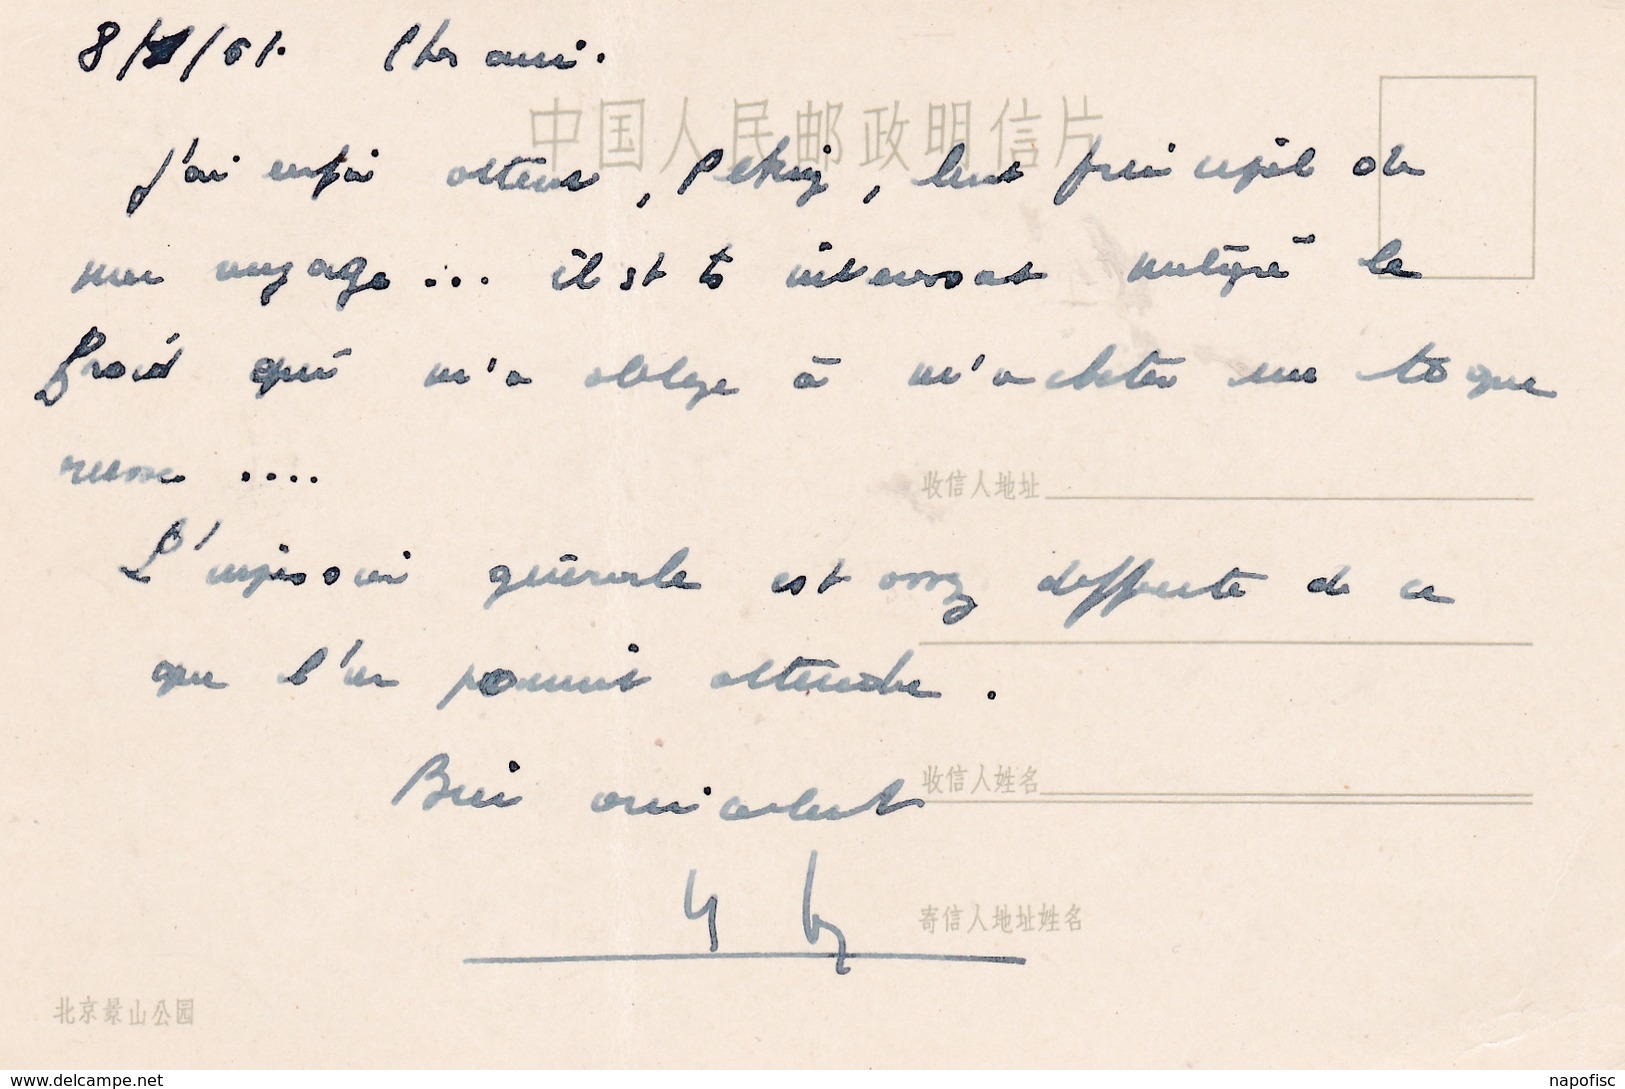 8/ /61. Cher ami.
中国人民邮政明信片
J'ai enfin atteint, Pékin, but principal de
mon voyage... il est ts intéressant malgré le
froid qui m'a obligé à m'acheter une toque
russe ....
收信人地址
L'impression générale est assez différente de ce
que l'on pouvait attendre.
收信人姓名
Bien amicalement
寄信人地址姓名
北京景山公园
www.delcampe.net
napofisc